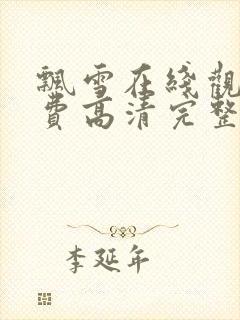 飄雪在綫觀
費高清完整
李延年